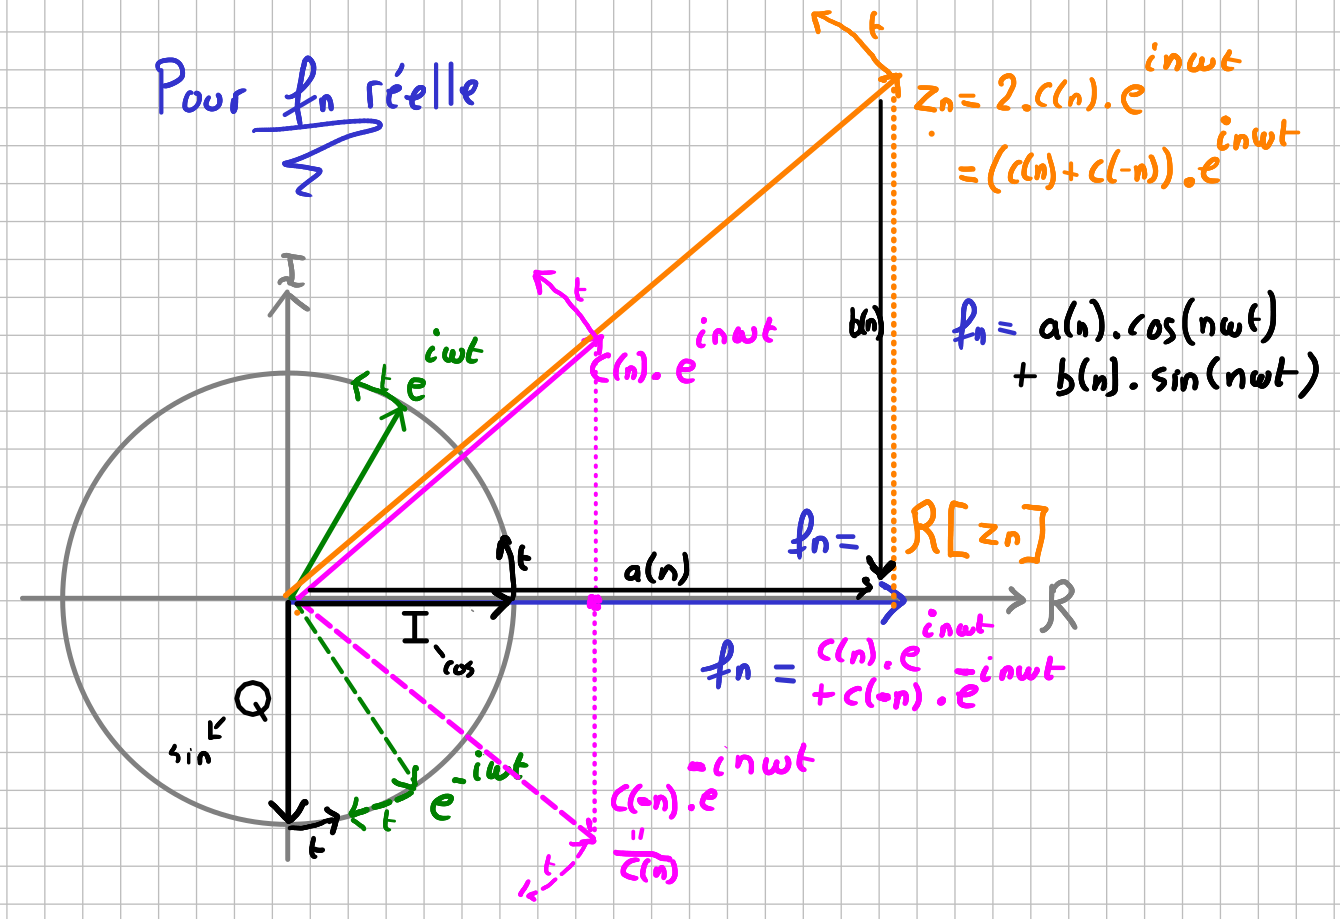 Pour fn réelle
t
zn = 2.c(n).e^inωt
= (c(n) + c(-n)).e^inωt
I
t
e^iωt
t
c(n).e^inωt
b(n)
fn = a(n).cos(nωt)
+ b(n).sin(nωt)
fn = R[zn]
t
a(n)
R
I
cos
fn = c(n).e^inωt
+ c(-n).e^-inωt
Q
sin
e^-iωt
t
t
c(-n).e^-inωt
"
c̅(̅n̅)̅
t